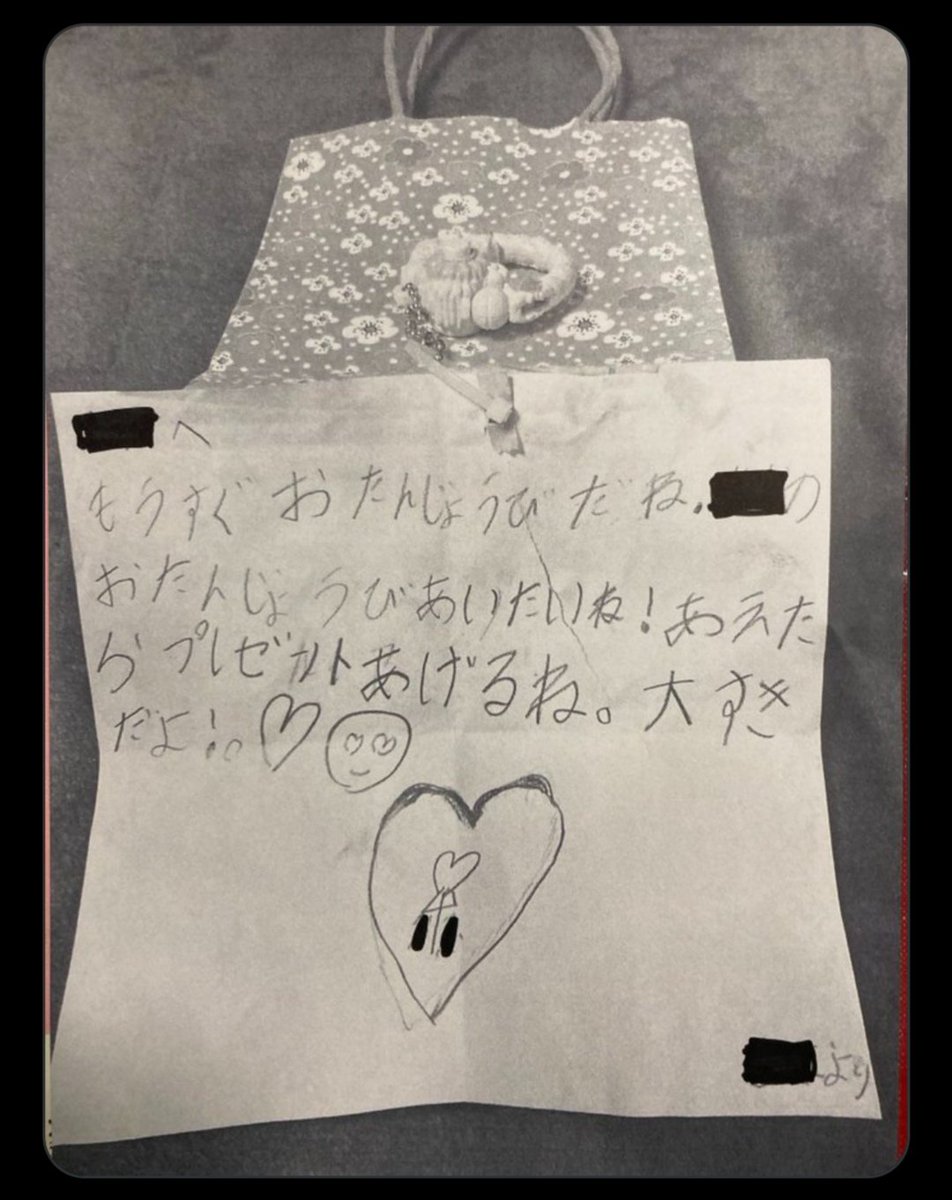 へ
もうすぐ おたんじょうび だね。の
おたんじょうびあいたいね!あえた
らプレゼントあげるね。大すき
だよ!。
より